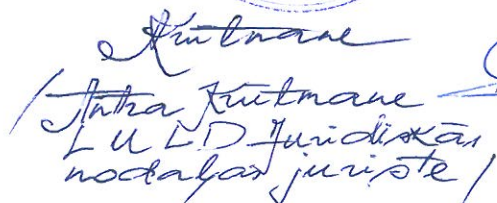 Krūtmane
/Antra Krūtmane
L U L D Juridiskās
nodaļas juriste/